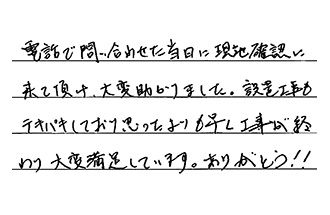 電話で問い合わせた当日に現地確認に
来て頂け、大変助かりました。設置工事も
テキパキしており思ったよりも早く工事が終
わり大変満足しています。ありがとう!!